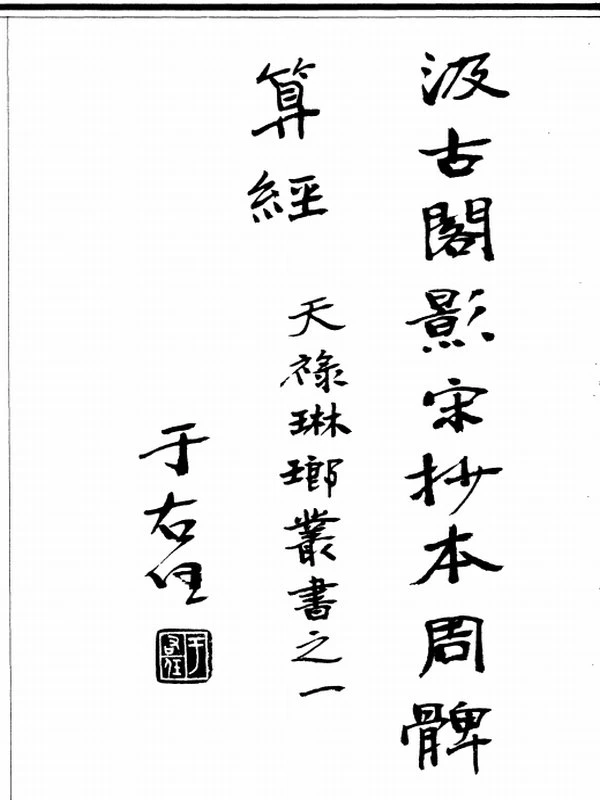 汲古閣影宋抄本周髀
算經
天祿琳瑯叢書之一
于右任
于右任